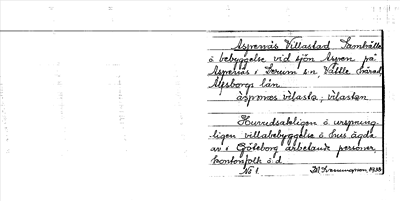 Aspenäs Villastad Samhälle
o bebyggelse vid sjön Aspen på
Aspenäs i Lerum sn Vättle härad,
Älfsborgs län.
aspənæs vilasta, vilastan
Huvudsakligen o ursprung-
ligen villabebyggelse o hus ägda
av i Göteborg arbetande personer,
kontorsfolk o.d.
No 1.
1938